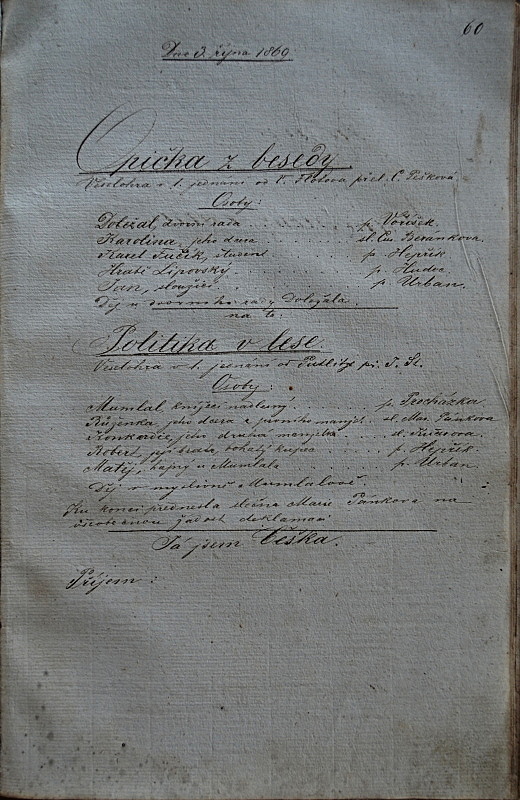 60
Dne 3. října 1869
Opička z besedy
Veselohra v 1. jednání od V. přel. E. Pešková
Osoby:
Doležal, dvorní rada p. Voříšek.
Karolina, jeho dcera sl. Beránkova.
Karel student p. Hepřík
Hrabě Lipovský p. Hudec
Jan, sloužící p. Urban.
Děj u dvorního rady Doležala.
na to:
Politika v lese.
Veselohra v 1. jednání od Putlitz př. J. St.
Osoby:
Mumlal, knížecí nadlesní p. Procházka
Růženka, jeho dcera z prvního manžel. sl. Mar. Pánkova
Konkordie, jeho druhá manželka sl.
Robert, její bratr, bohatý kupec p. Hepřík.
Matěj, hajný u Mumlala p. Urban.
Děj v myslivně Mumlalově.
Ku konci přednesla slečna Marie Pánkova na
všeobecnou žádost deklamaci
Já jsem Češka.
Příjem: